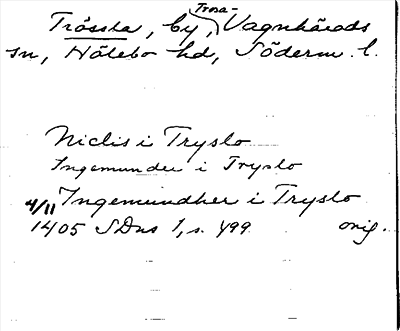 Trosa-
Trässla, by, Vagnhärads
sn, Hölebo hd, Söderm. l.
Niclis i Tryslo
Ingemunder i Tryslo
4/11 Ingemundher i Tryslo
1405 SDns 1, s. 499 orig.